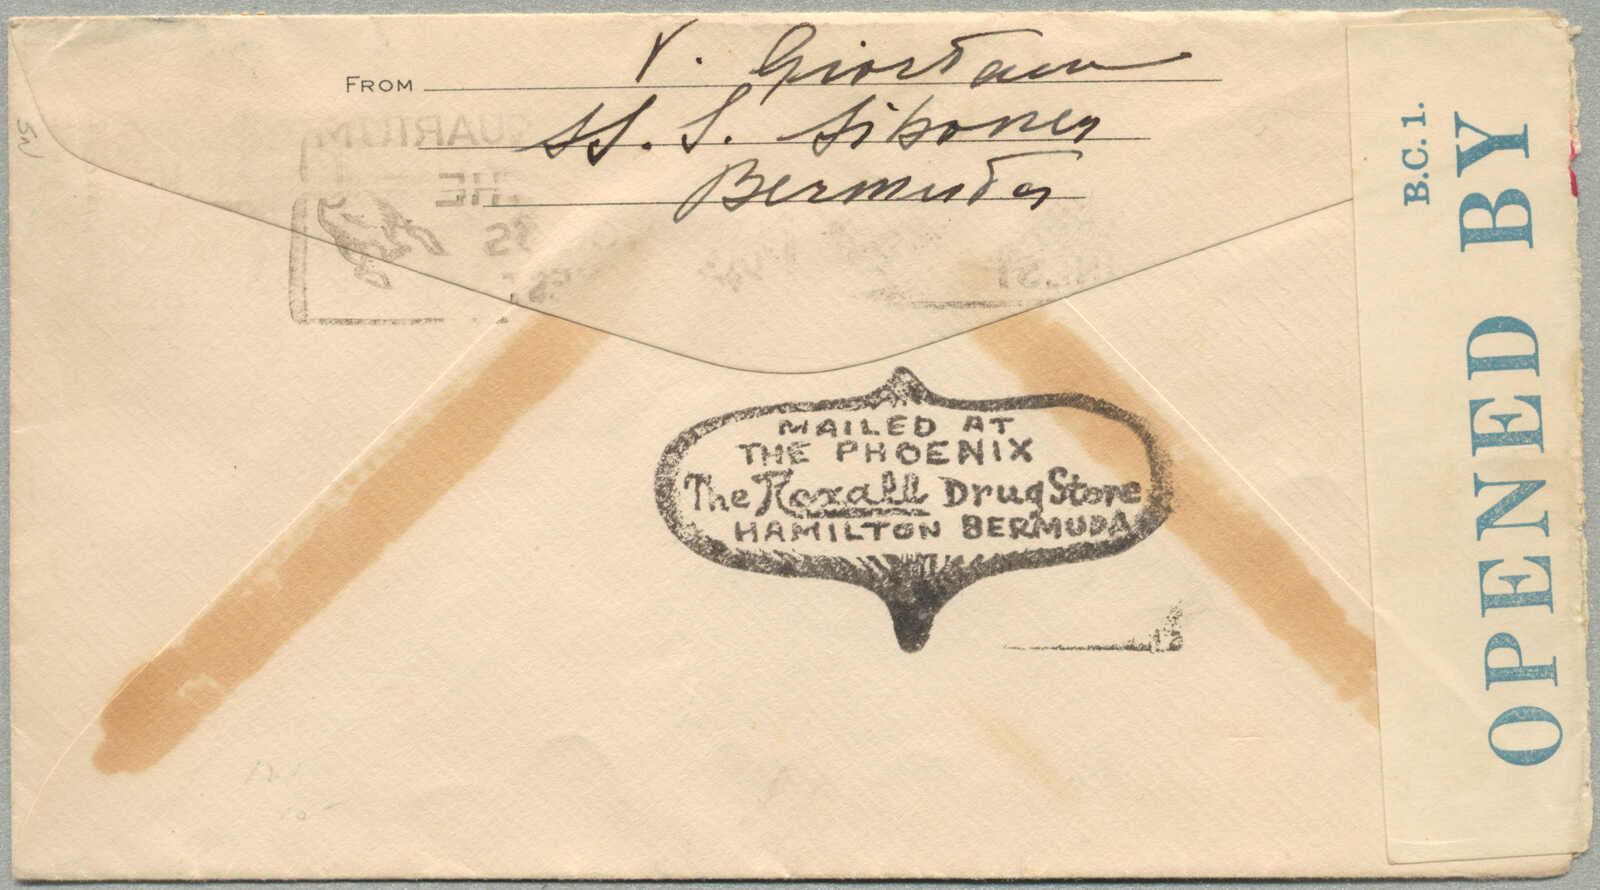 FROM V. Giordano
SS. S. Siboney
Bermuda
MAILED AT
THE PHOENIX
The Rexall Drug Store
HAMILTON BERMUDA
B.C.1.
OPENED BY